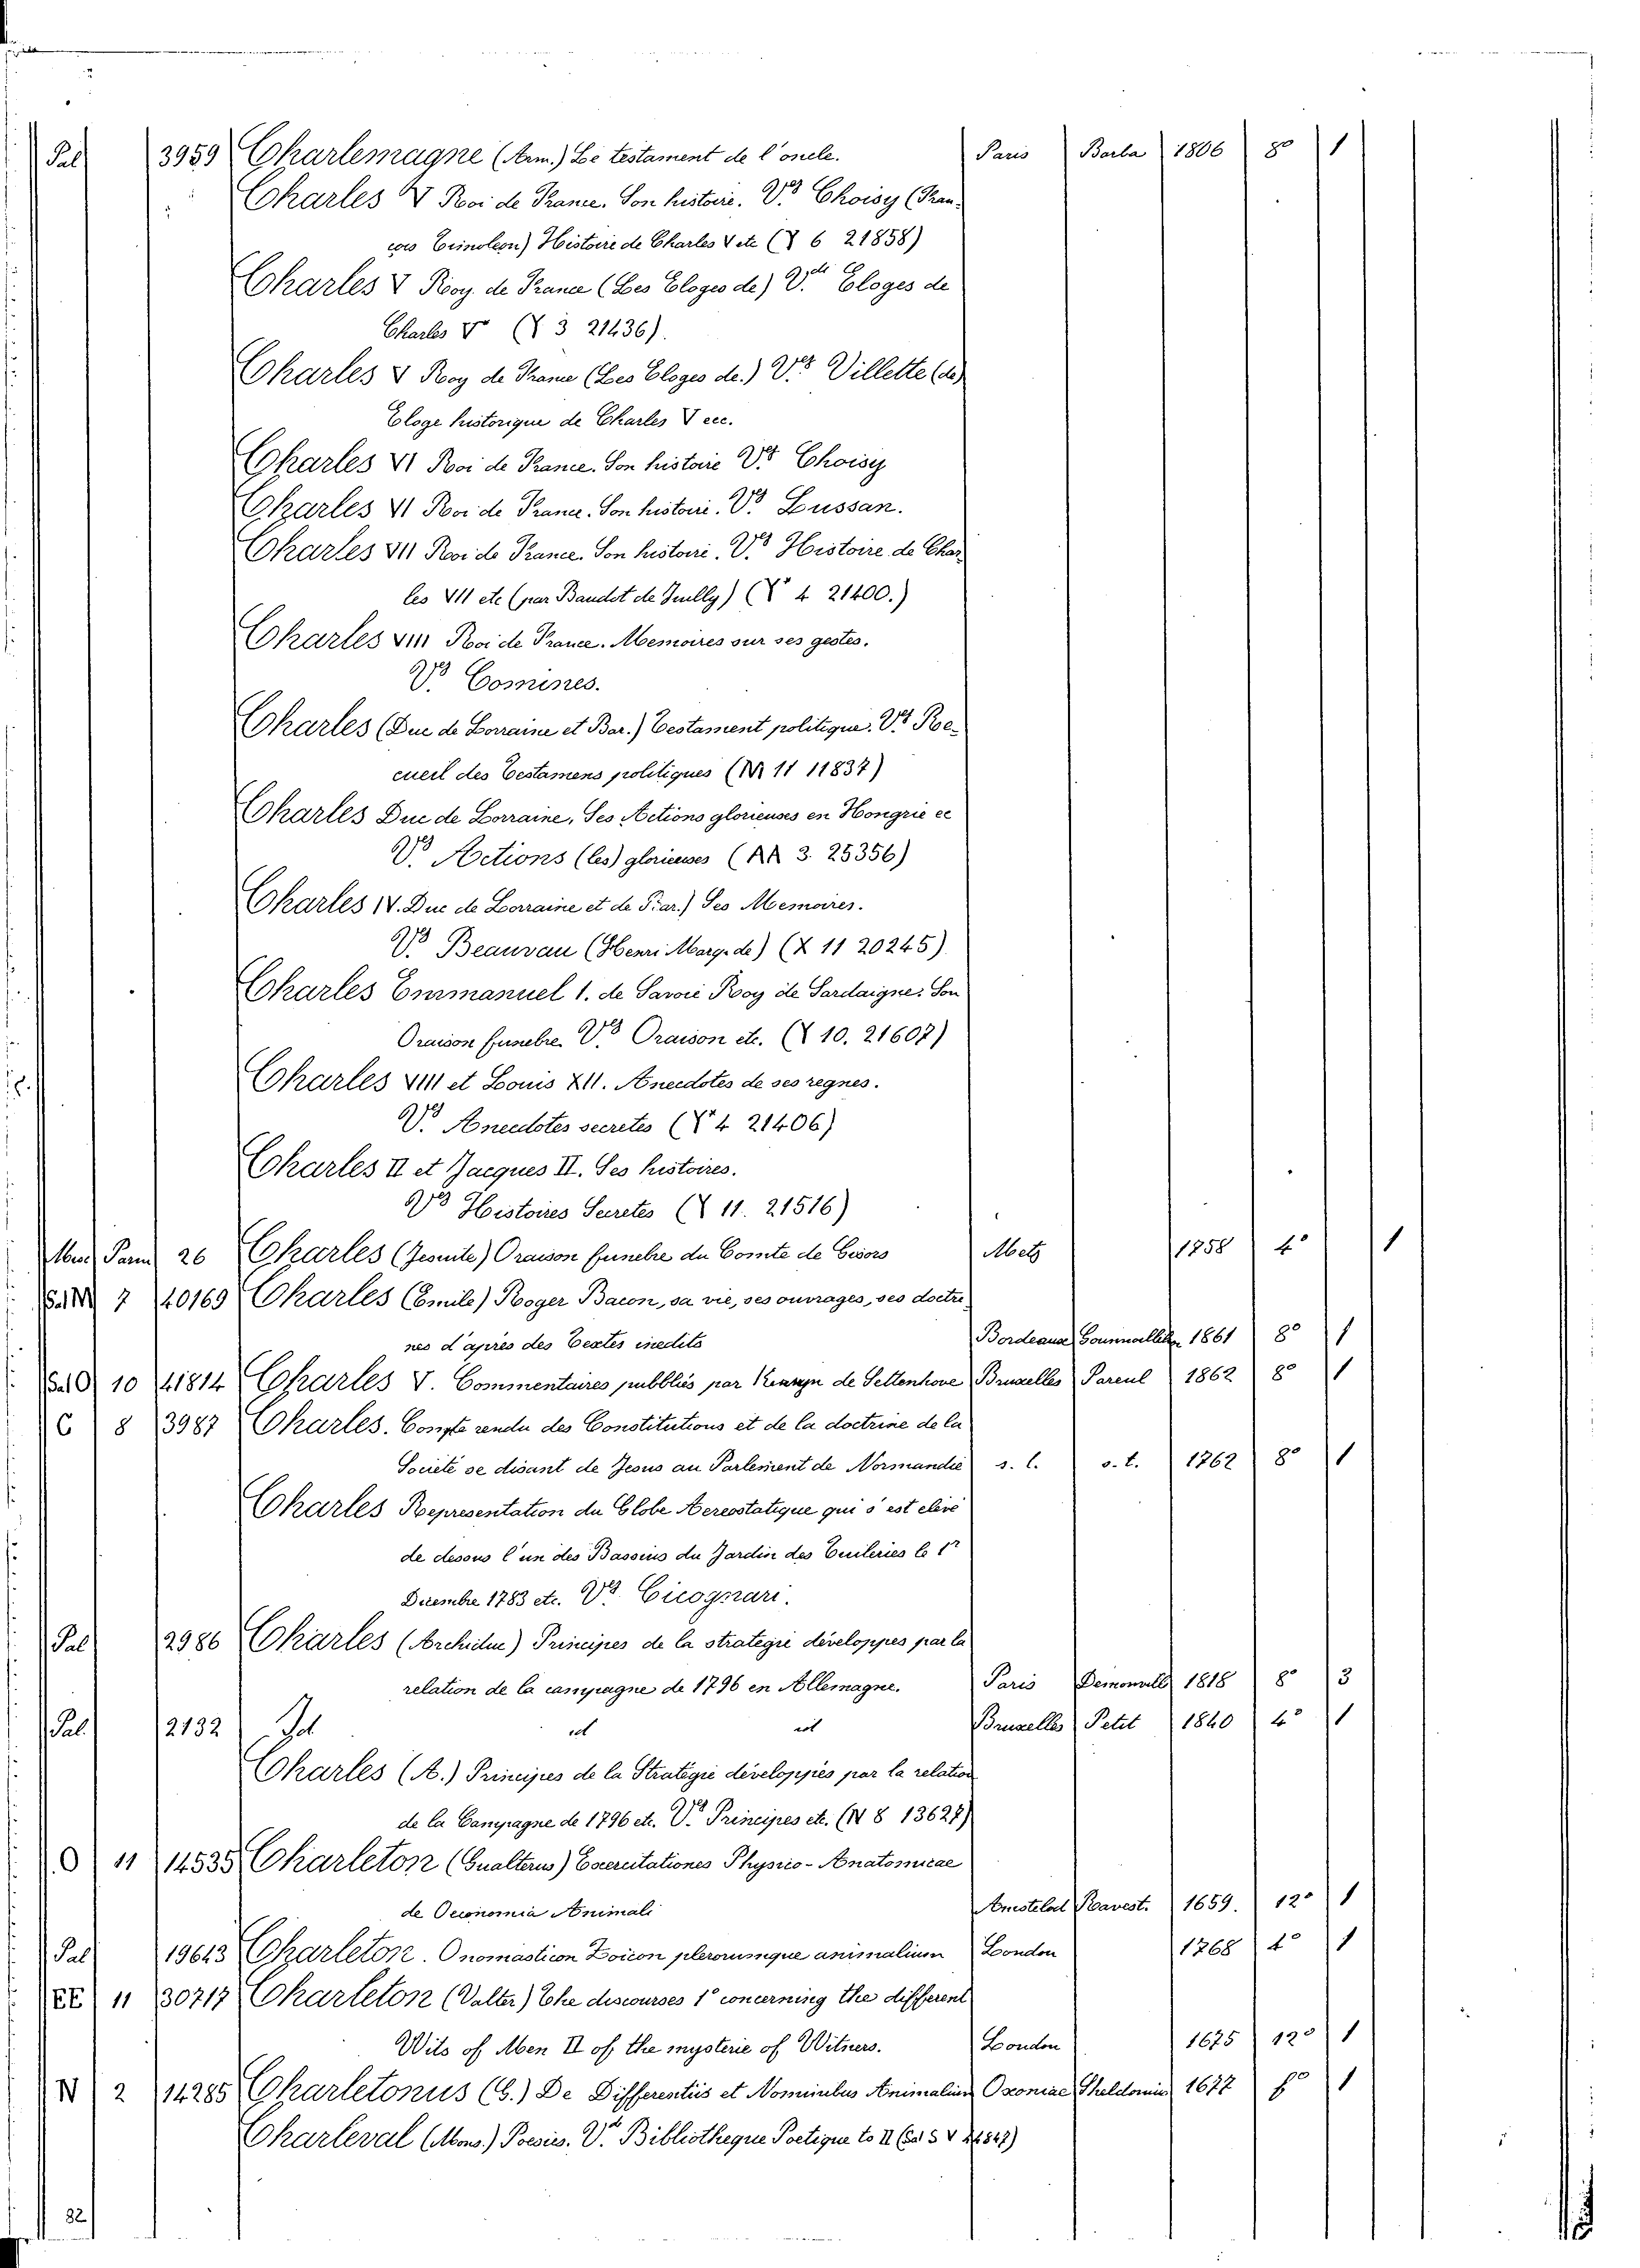 Pal 3959 Charlemagne (Arm.) Le testament de l'oncle. Paris Barba 1806 8° 1
Charles V Roi de France. Son histoire. V.s Choisy (Fran-
çois Timoleon) Histoire de Charles V etc (Y 6 21858)
Charles V Roy. de France (Les Eloges de) V. Eloges de
Charles V° (Y 3 21436).
Charles V Roy de France (Les Eloges de.) V.s Villette (de)
Eloge historique de Charles V ecc.
Charles VI Roi de France. Son histoire V.s Choisy
Charles VI Roi de France. Son histoire. V.s Lussan.
Charles VII Roi de France. Son histoire. V.s Histoire de Char-
les VII etc (par Baudot de Juilly) (Y 4 21400.)
Charles VIII Roi de France. Memoires sur ses gestes.
V.s Comines.
Charles (Duc de Lorraine et Bar.) Testament politique. V.s Re-
cueil des Testamens politiques (M 11 11837)
Charles Duc de Lorraine, Ses Actions glorieuses en Hongrie ec
V.s Actions (les) glorieuses (AA 3. 25356)
Charles IV. Duc de Lorraine et de Bar.) Ses Memoires.
V.s Beauvau (Henri Marq. de) (X 11 20245)
Charles Emmanuel 1. de Savoie Roy de Sardaigne. Son
Oraison funebre. V.s Oraison etc. (Y 10. 21607)
Charles VIII et Louis XII. Anecdotes de ses regnes.
V.s Anecdotes secretes (Y 4 21406)
Charles II et Jacques II. Ses histoires.
V.s Histoires Secretes (Y 11. 21516)
Misc Parm 26 Charles (Jesuite) Oraison funebre du Comte de Gisors Metz 1758 4° 1
Sal M 7 40169 Charles (Emile) Roger Bacon, sa vie, ses ouvrages, ses doctri-
nes d'après des Textes inedits Bordeaux 1861 8° 1
Sal O 10 41814 Charles V. Commentaires pubbliés par de Settenhove Bruxelles Parent 1862 8° 1
C 8 3987 Charles. Compte rendu des Constitutions et de la doctrine de la
Societé se disant de Jesus au Parlement de Normandie s. l. s. t. 1762 8° 1
Charles Representation du Globe Aereostatique qui s'est elevé
de desous l'un des Bassins du Jardin des Tuileries le 1r
Decembre 1783 etc. V.s Cicognari.
Pal 2986 Charles (Archiduc) Principes de la strategie développes par la
relation de la campagne de 1796 en Allemagne. Paris Demonvill 1818 8° 3
Pal 2132 Id id id Bruxelles Petit 1840 4° 1
Charles (A.) Principes de la Strategie développiés par la relation
de la Campagne de 1796 etc. V.s Principes etc. (N 8 13627)
O 11 14535 Charleton (Gualterus) Exercitationes Physico-Anatomicae
de Oeconomia Animali Amstelod Ravest. 1659. 12° 1
Pal 19643 Charleton. Onomasticon Zoicon plerorumque animalium London 1768 4° 1
EE 11 30717 Charleton (Valter) The discourses 1° concerning the different
Wits of Men II of the mysterie of Witners. London 1675 12° 1
N 2 14285 Charletonus (G.) De Differentiis et Nominibus Animalium Oxoniae Theldonius 1677 f° 1
Charleval (Mons.) Poesies. V. Bibliotheque Poetique to II (Sal S V
82